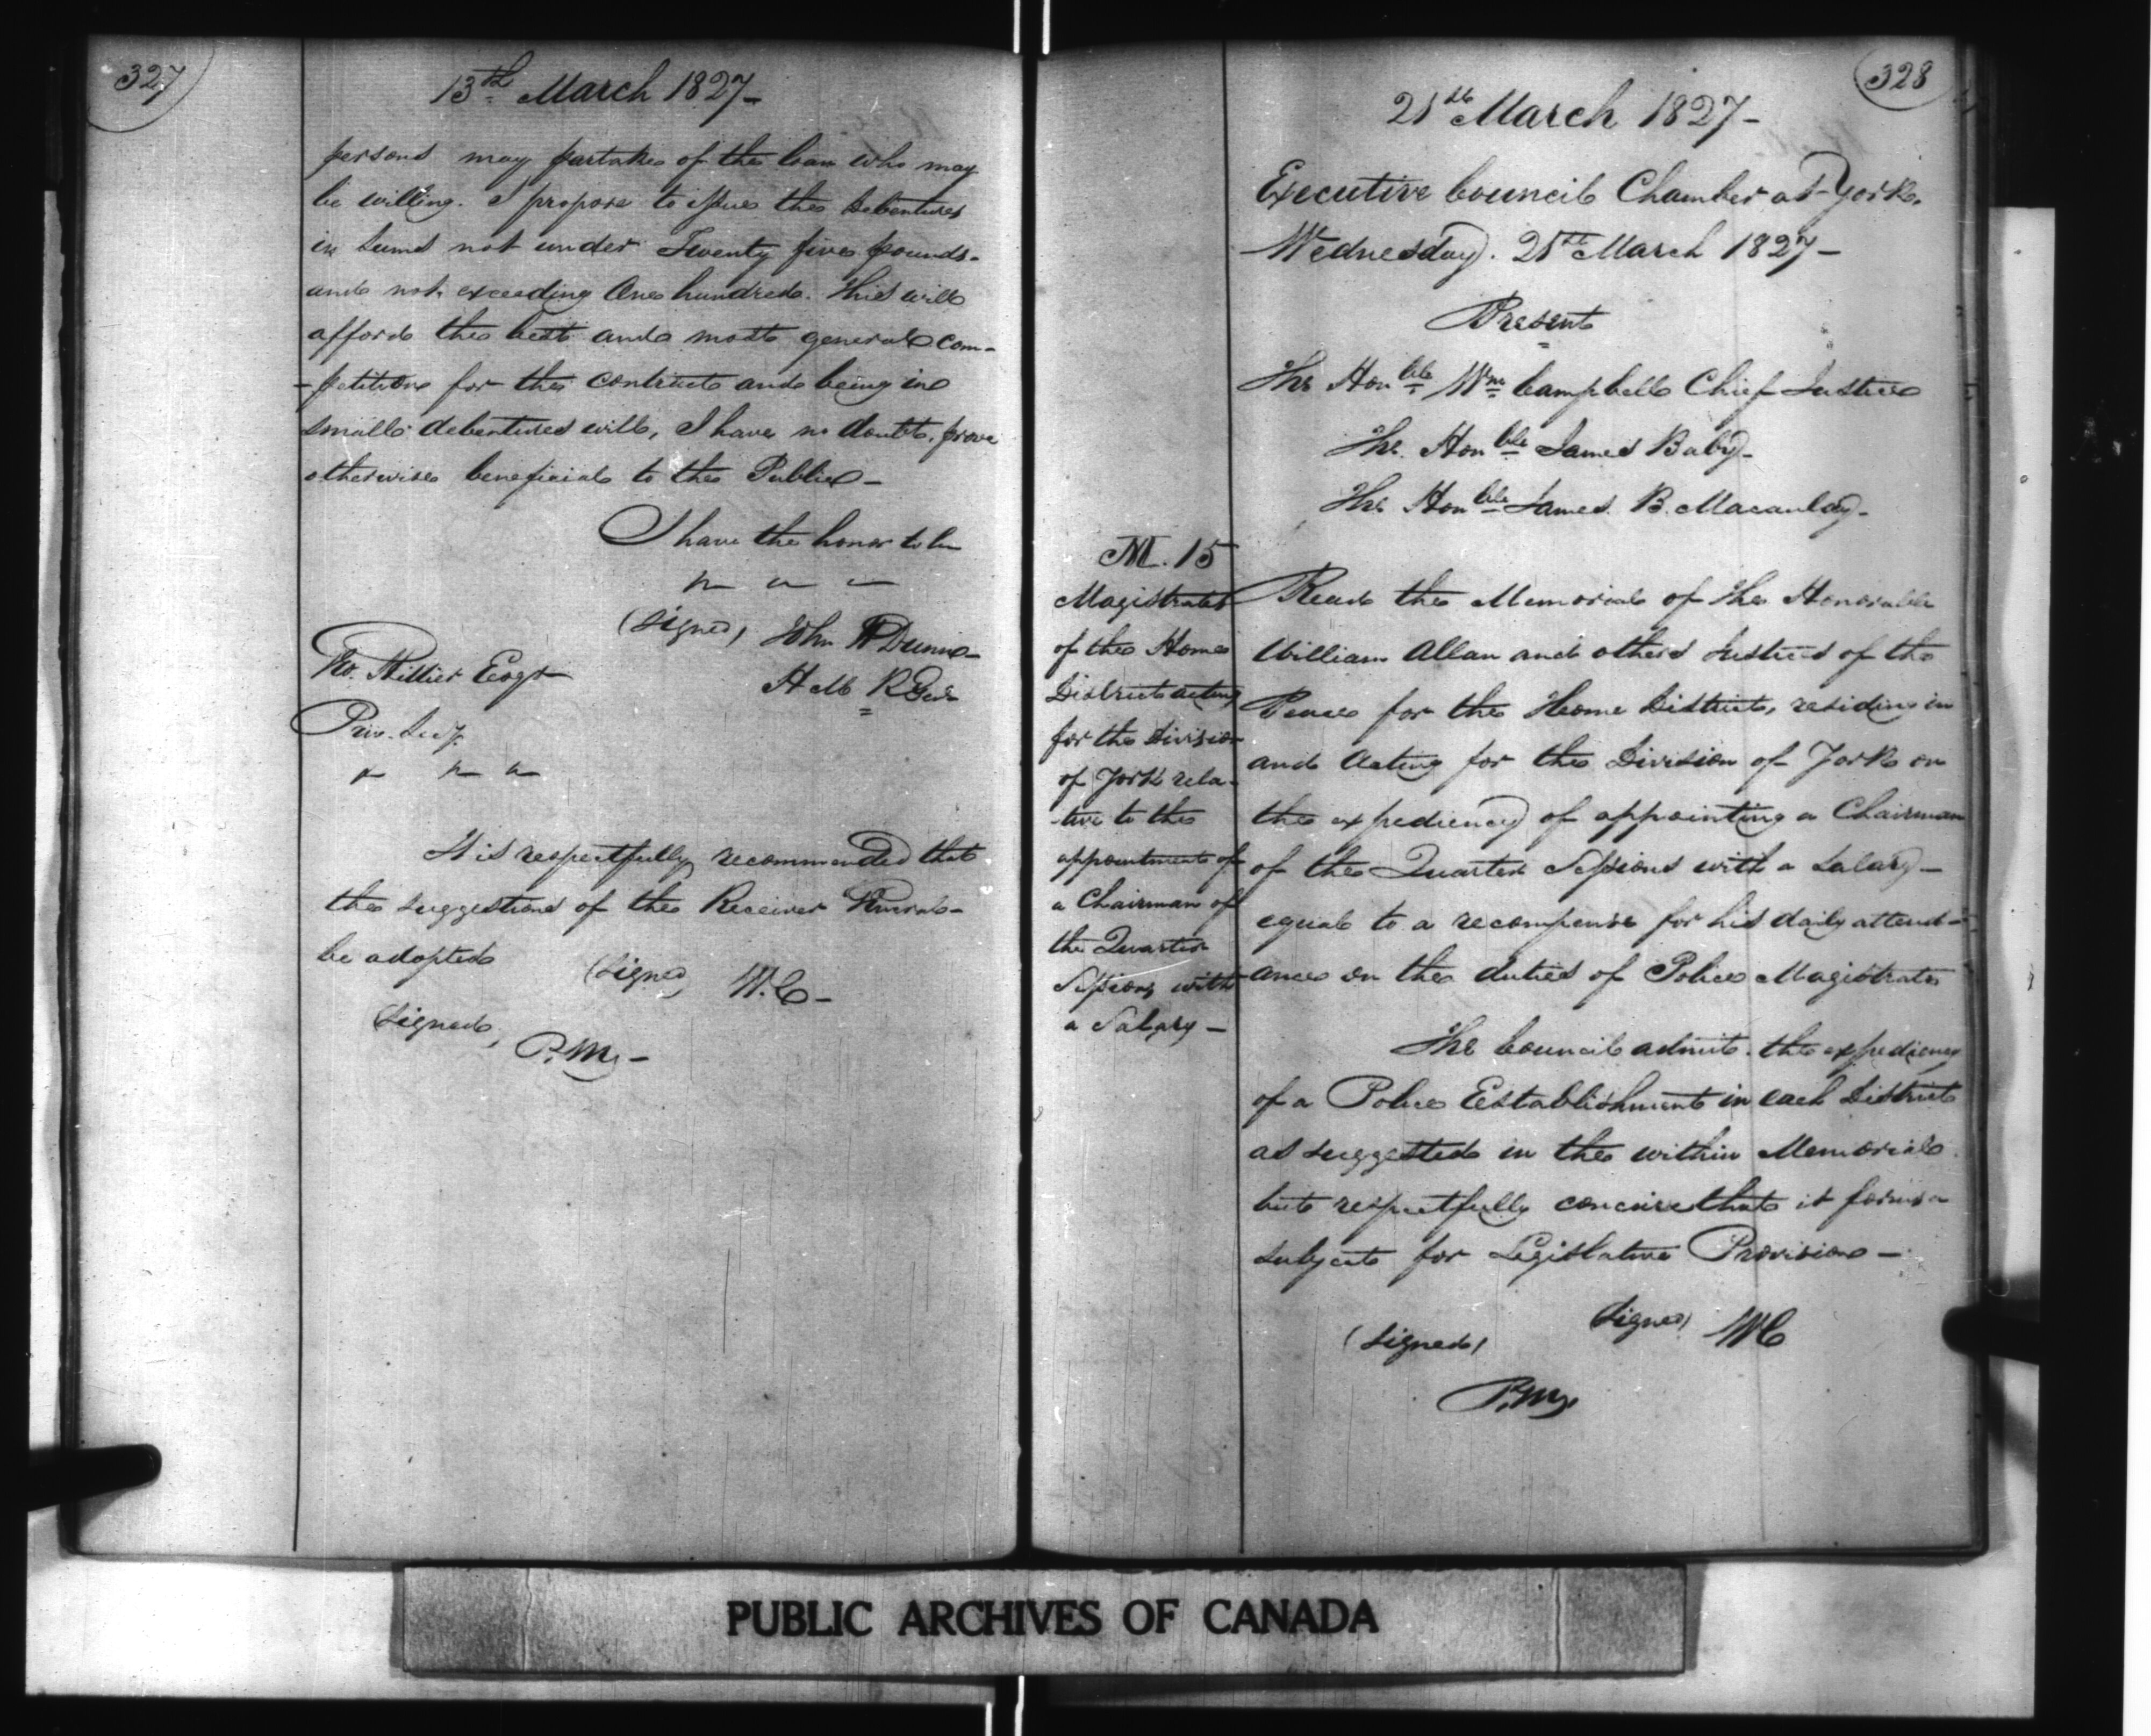 327
13th March 1827-
persons may partake of the loan who may
be willing. I propose to issue the debentures
in sums not under Twenty five pounds-
and not exceeding One hundred. This will
afford the best and most general com-
-petition for the contract and being in
small debentures will, I have no doubt, prove
otherwise beneficial to the Public-
I have the honor to be
(Signed) John H Dunn-
H M R Genl
Wm. Hillier Esqr
Priv. Secy.
It is respectfully recommended that
the suggestions of the Receiver General-
be adopted
(Signed W.C-
Signed,
P.M-
328
21st March 1827-
Executive Council Chamber at York.
Wednesday. 21st March 1827-
Present
The Honble Wm Campbell Chief Justice
The Honble James Baby-
The Honble James B. Macaulay-
M. 15
Magistrates
of the Home
District acting
for the Division
of York rela-
-tive to the
appointment of
a Chairman of
the Quarter
Sessions with
a Salary-
Read the Memorial of the Honorable
William Allan and others Justices of the
Peace for the Home District, residing in
and Acting for the Division of York on
the expediency of appointing a Chairman
of the Quarter Sessions with a Salary-
equal to a recompense for his daily attend-
ance on the duties of Police Magistrate
The Council admit the expediency
of a Police Establishment in each District
as suggested in the within Memorial
but respectfully conceive that it forms a
subject for Legislative Provision-
Signed) WC
(Signed)
P.M.
PUBLIC ARCHIVES OF CANADA